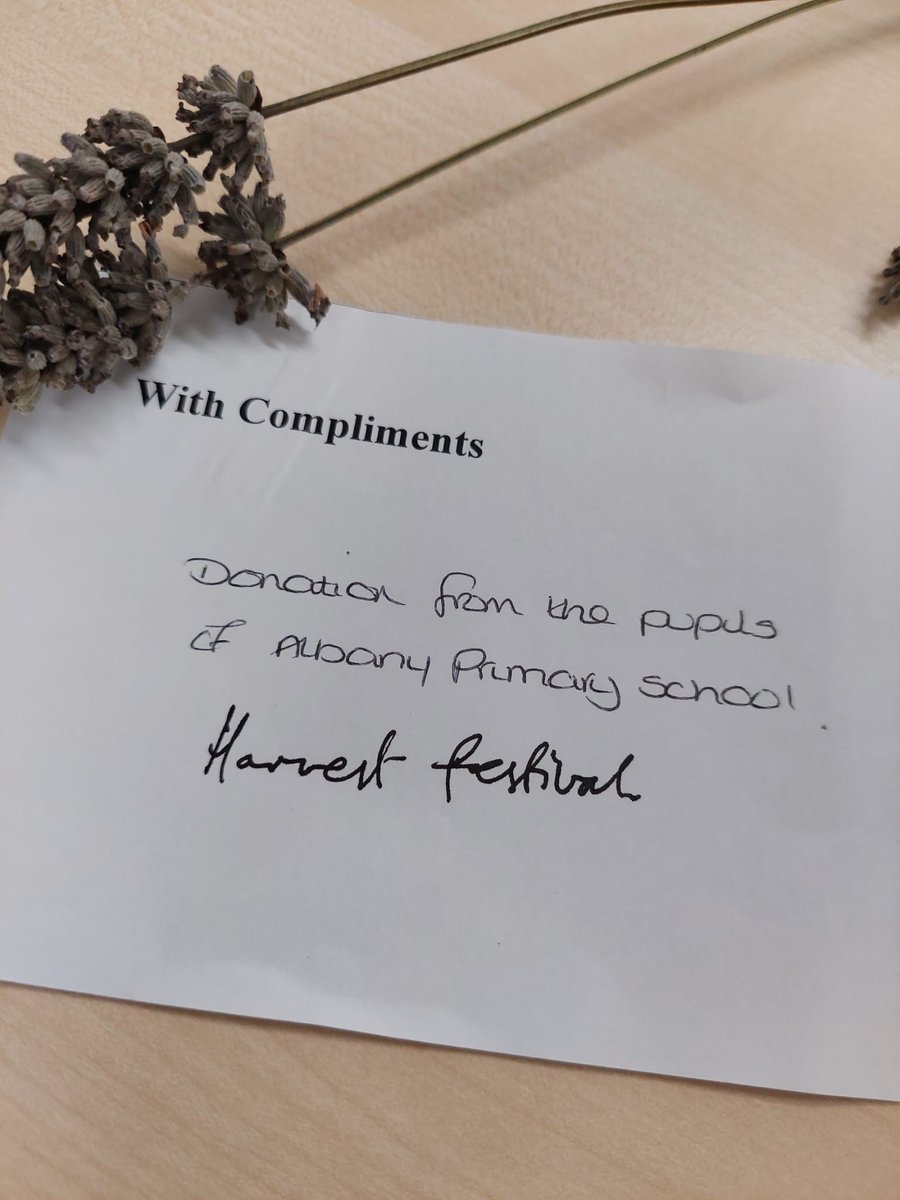 With Compliments
Donation from the pupils
of Albany Primary School
Harvest festival.